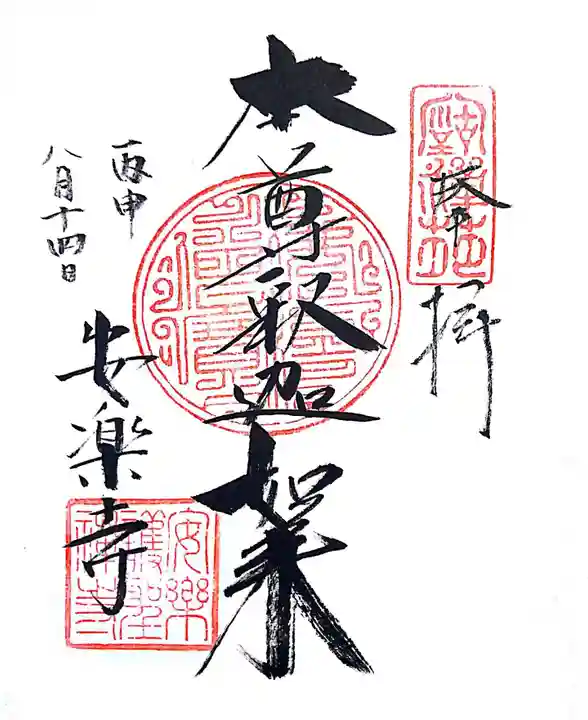 奉拝
本尊釈迦如来
丙申
八月十四日
安楽寺